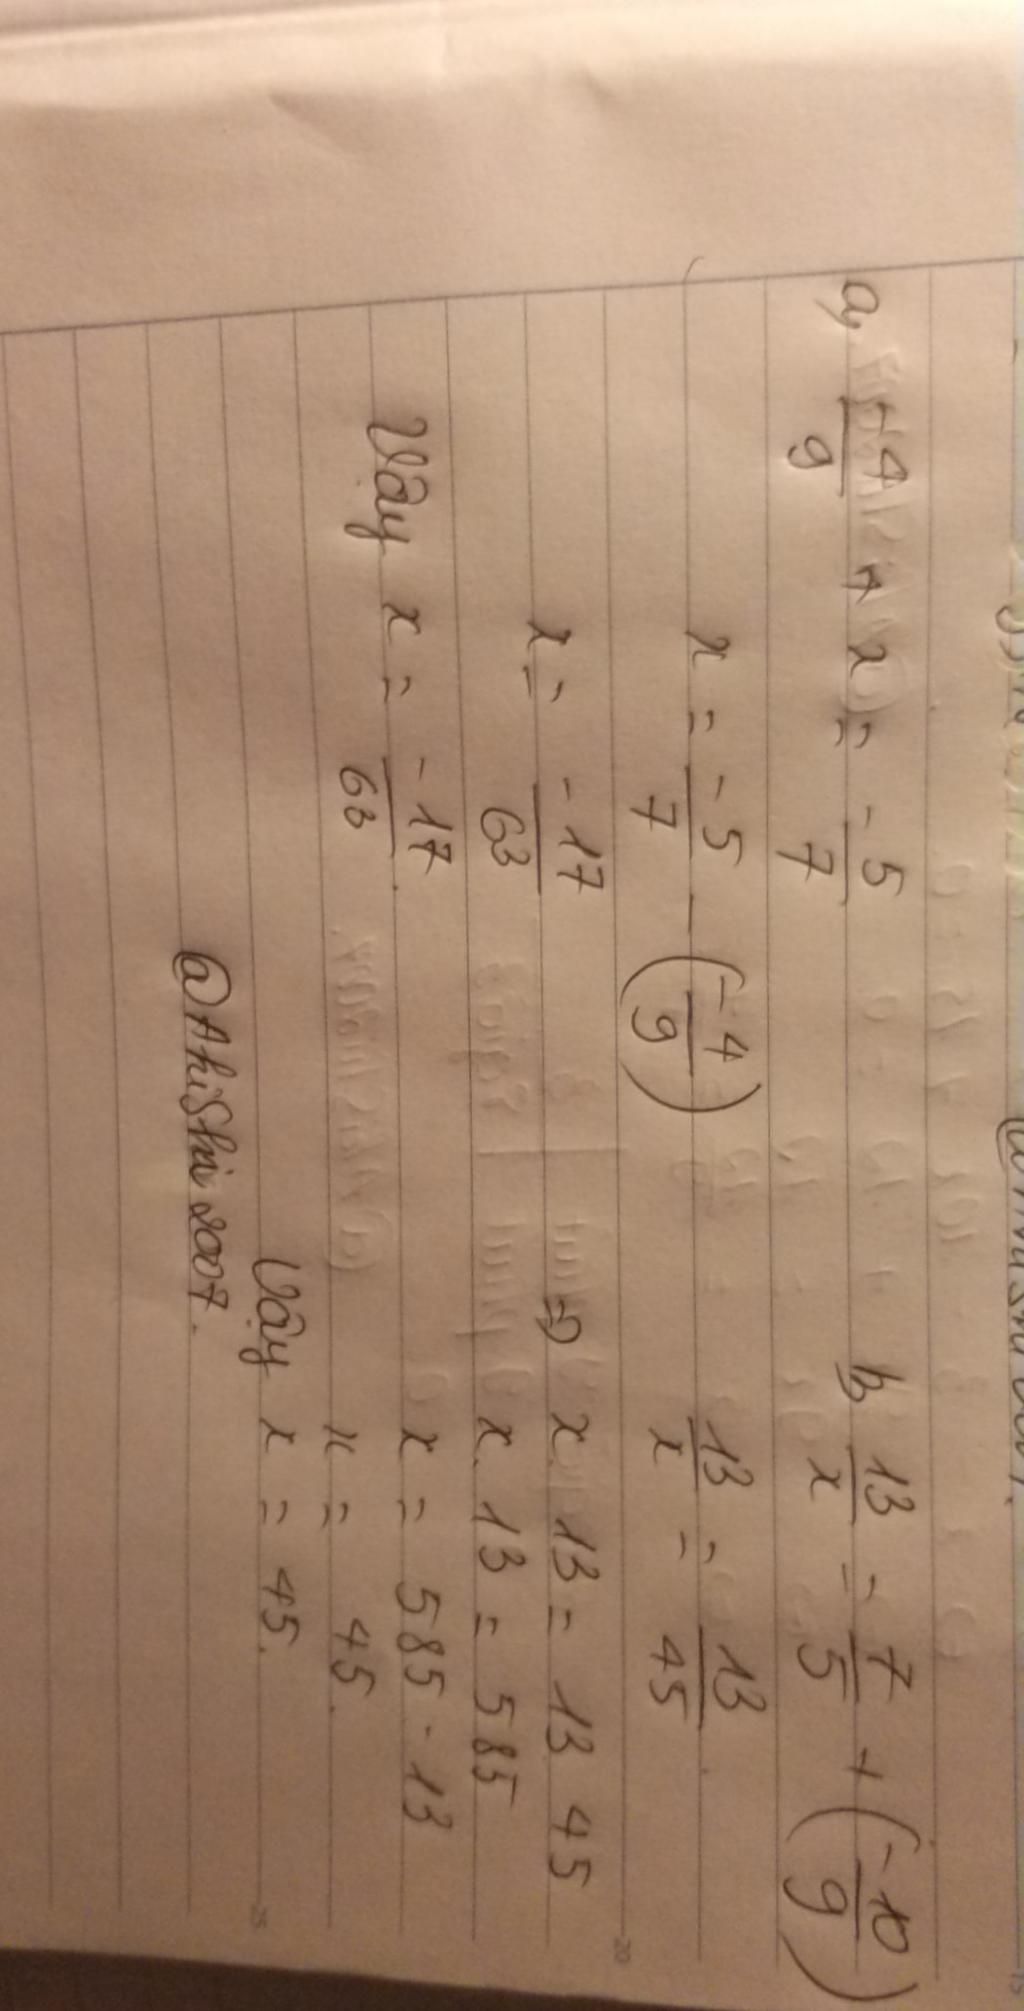 a, -4/9 + x = -5/7
x = -5/7 - (-4/9)
x = -17/63
Vậy x = -17/63.
b, 13/x = 7/5 + (-10/9)
13/x = 13/45
=> x. 13 = 13 45
x. 13 = 585
x = 585 : 13
x = 45.
Vậy x = 45.
@Ahishi2007.